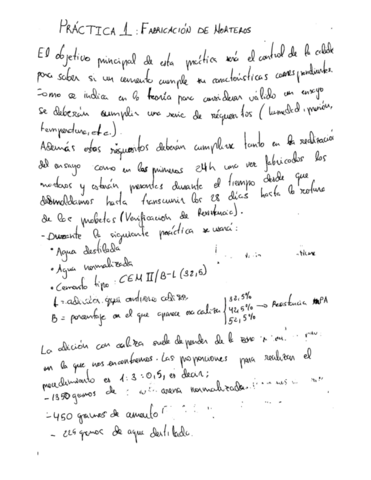 PRÁCTICA 1: FABRICACIÓN DE MORTEROS
El objetivo principal de esta práctica será el control de la calidad
para saber si un cemento cumple sus características correspondientes.
Como se indica en la teoría para considerar válido un ensayo
se deberán cumplir una serie de requisitos (humedad, presión,
temperatura, etc.).
Además estos requisitos deberán cumplirse tanto en la realización
del ensayo como en las primeras 24h una vez fabricados los
morteros y estarán presentes durante el tiempo desde que
desmoldamos hasta transcurrir los 28 días hasta la rotura
de las probetas (Verificación de Resistencia).
- Durante la siguiente práctica se usará:
• Agua destilada
• Agua normalizada
• Cemento tipo: CEM II/B-L (32,5)
L = adición que contiene caliza.
B = porcentaje en el que aparece esa caliza 32,5% 42,5% 52,5% → Resistencia MPA
La adición con caliza suele depender de la zona
en la que nos encontremos. Las proporciones para realizar el
procedimiento es 1:3:0,5, es decir;
- 1350 gramos de arena normalizada
- 450 gramos de cemento
- 225 gramos de agua destilada.